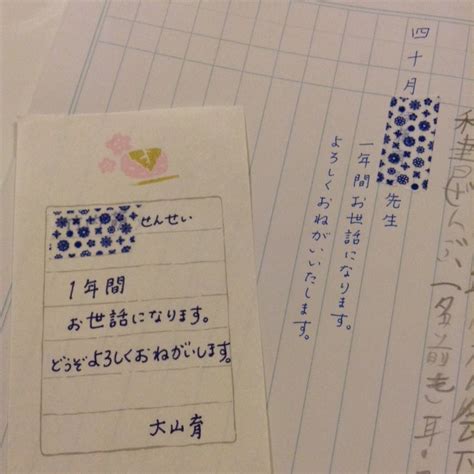 せんせい
1年間
お世話になります。
どうぞよろしくおねがいします。
大山育
四十月
先生
一年間お世話になります。
よろしくおねがいいたします。